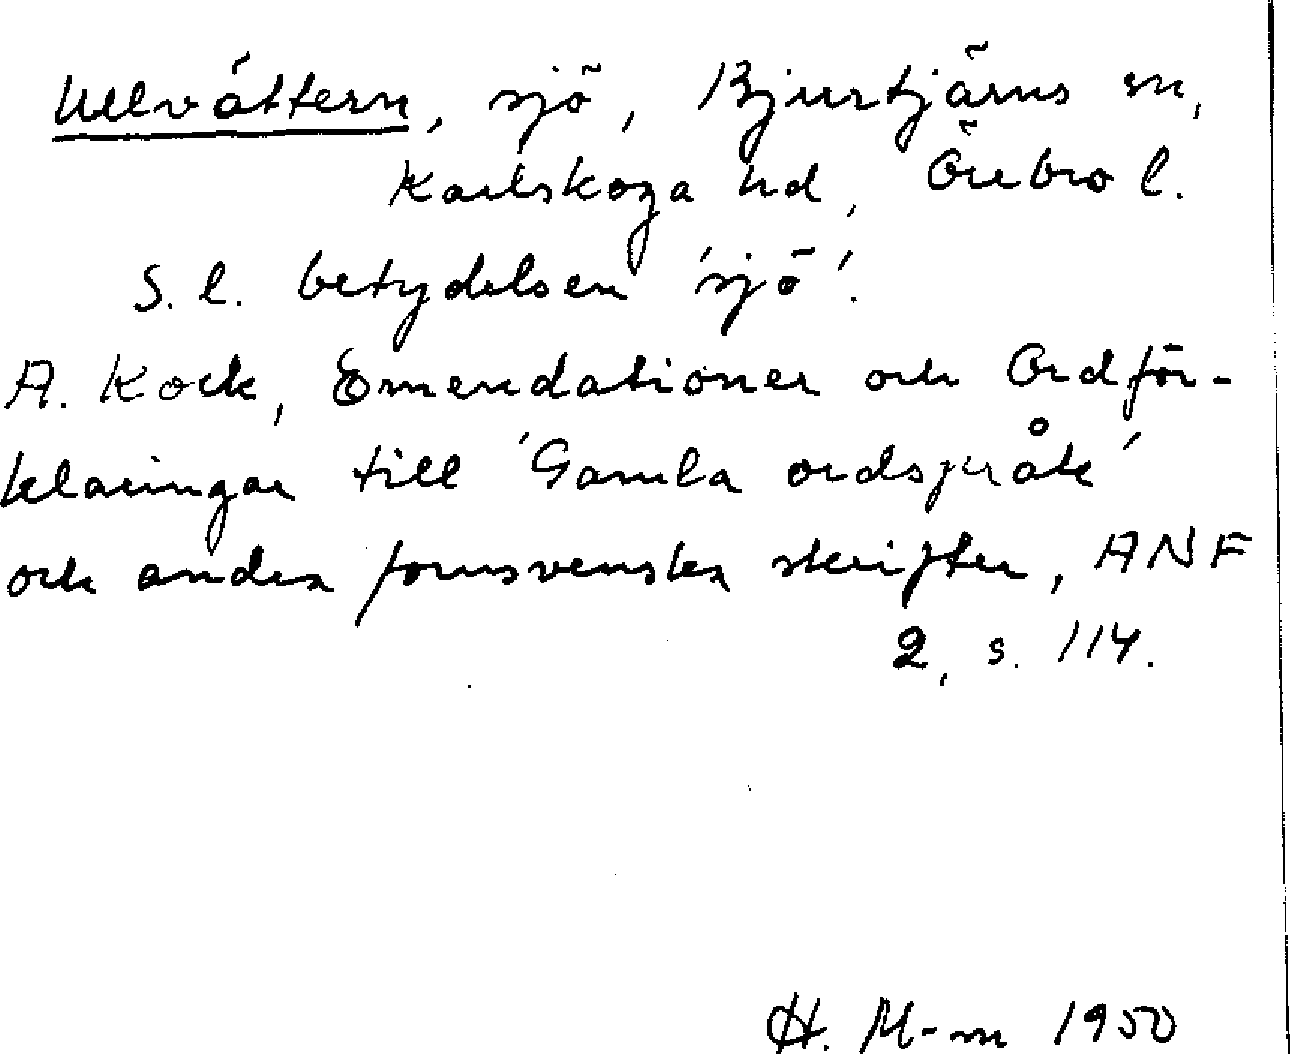 Ullvättern, sjö, Bjurtjärns sn,
Karlskoga hd, Örebro l.
S. l. betydelsen 'sjö'.
A. Kock, Emendationer och Ordför-
klaringar till 'Gamla ordspråk'
och andra fornsvenska skrifter, ANF
2, s. 114.
H. M-m 1950